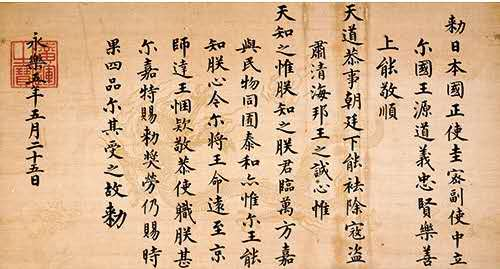 勅日本國正使圭密副使中立
尓國王源道義忠賢樂善
上能敬順
天道恭事朝廷下能祛除寇盗
肅清海邦王之誠心惟
天知之惟朕知之朕君臨萬方嘉
與民物同囿泰和亦惟尓王能
知朕心今尓将王命遠至京
師達王悃欵敬恭使職朕甚
尓嘉特賜勅奬勞仍賜時
果四品尓其受之故勅
永樂五年五月二十五日